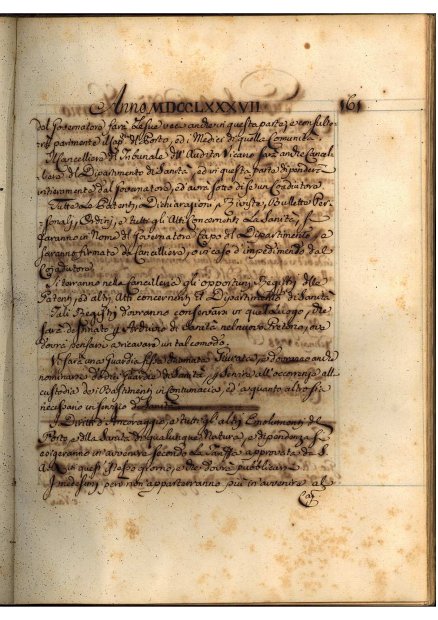 Anno MDCCLXXXVII 161
dal Governatore farà le sue veci anche in questa parte, e consulte-
rà parimente il Cap. del Porto, ed i Medici di quella Comunità.
Il Cancelliere del Tribunale dell'Auditor Vicario farà anche da Cancel-
liere del Dipartimento di Sanità, ed in questa parte dipenderà
interamente dal Governatore, ed avrà sotto di se un Coadiutore
Tutte le Patenti, Dichiarazioni, Bullette Per-
sonali, Ordini, e tutti gli Atti Concernenti la Sanità, si
faranno in Nome del Governatore Capo del Dipartimento, e
saranno firmate dal Cancelliere, o in caso d'impedimento dal
Coadiutore
Si terranno nella Cancelleria gli opportuni Registri delle
Patenti, ed altri Atti concernenti il Dipartimento di Sanità
Tali Registri dovranno conservarsi in quel luogo, che
sarà destinato p. Archivio di Sanità nel nuovo Pretorio, ove
dovrà pensarsi a ricavare un tal comodo.
Vi sarà una Guardia fissa Giurata, e dovranno anche
nominarsi delle Guardie di Sanità, p. servire all'occorrenze alla
custodia dei Bastimenti in contumacia, ed a quanto altro sia
necessario in servizio di Sanità
I Diritti d'Ancoraggio, e tutti gli altri Emolumenti del
Porto, e della Sanità di qualunque Natura, e dipendenza si
esigeranno in avvenire secondo la Tariffa approvata da S.
A. R. in questo stesso giorno, e che dovrà pubblicarsi
I medesimi però non apparterranno più in avvenire al
Cap.